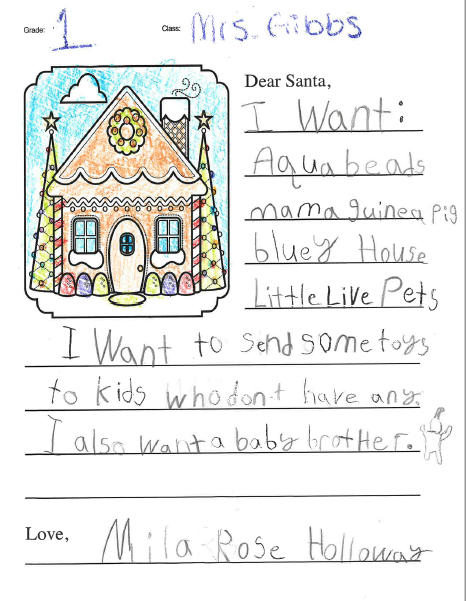 Grade: 1 Class: Mrs. Gibbs
Dear Santa,
I Want:
Aquabeads
mama guinea pig
bluey House
Little Live Pets
I Want to send some toys
to kids who don't have any.
I also want a baby brotHer.
Love, Mila Rose Holloway